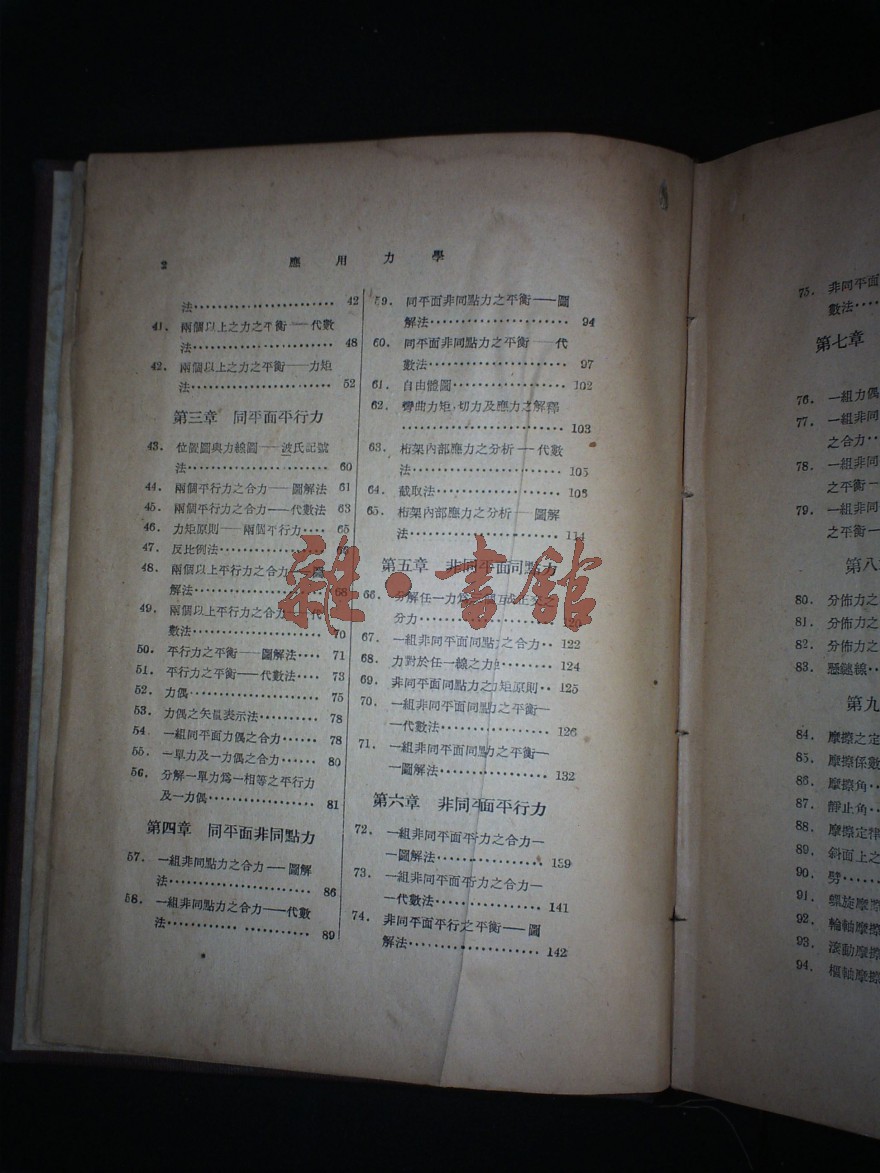 2 應用力學
法 42
41. 兩個以上之力之平衡——代數
法 48
42. 兩個以上之力之平衡——力矩
法 52
第三章 同平面平行力
43. 位置圖與力線圖——波氏記號
法 60
44. 兩個平行力之合力——圖解法 61
45. 兩個平行力之合力——代數法 63
46. 力矩原則——兩個平行力 65
47. 反比例法
48. 兩個以上平行力之合力——圖
解法 68
49. 兩個以上平行力之合力——代
數法 70
50. 平行力之平衡——圖解法 71
51. 平行力之平衡——代數法 73
52. 力偶 75
53. 力偶之矢量表示法 78
54. 一組同平面力偶之合力 78
55. 一單力及一力偶之合力 80
56. 分解一單力爲一相等之平行力
及一力偶 81
第四章 同平面非同點力
57. 一組非同點力之合力——圖解
法 86
58. 一組非同點力之合力——代數
法 89
59. 同平面非同點力之平衡——圖
解法 94
60. 同平面非同點力之平衡——代
數法 97
61. 自由體圖 102
62. 彎曲力矩,切力及應力之解釋
103
63. 桁架內部應力之分析——代數
法 105
64. 截取法 106
65. 桁架內部應力之分析——圖解
法 114
第五章 非同平面同點力
66. 分解任一力爲互成正交之
分力 120
67. 一組非同平面同點力之合力 122
68. 力對於任一線之力矩 124
69. 非同平面同點力之力矩原則 125
70. 一組非同平面同點力之平衡—
—代數法 126
71. 一組非同平面同點力之平衡—
—圖解法 132
第六章 非同平面平行力
72. 一組非同平面平行力之合力—
—圖解法 139
73. 一組非同平面平行力之合力—
—代數法 141
74. 非同平面平行之平衡——圖
解法 142
雜·書館
75. 非同平面
數法
第七章
76. 一組力偶
77. 一組非同
之合力
78. 一組非同
之平衡—
79. 一組非同
之平衡—
第八
80. 分佈力之
81. 分佈力之
82. 分佈力之
83. 懸鏈線
第九
84. 摩擦之定
85. 摩擦係數
86. 摩擦角
87. 靜止角
88. 摩擦定律
89. 斜面上之
90. 劈
91. 螺旋摩擦
92. 輪軸摩擦
93. 滾動摩擦
94. 樞軸摩擦